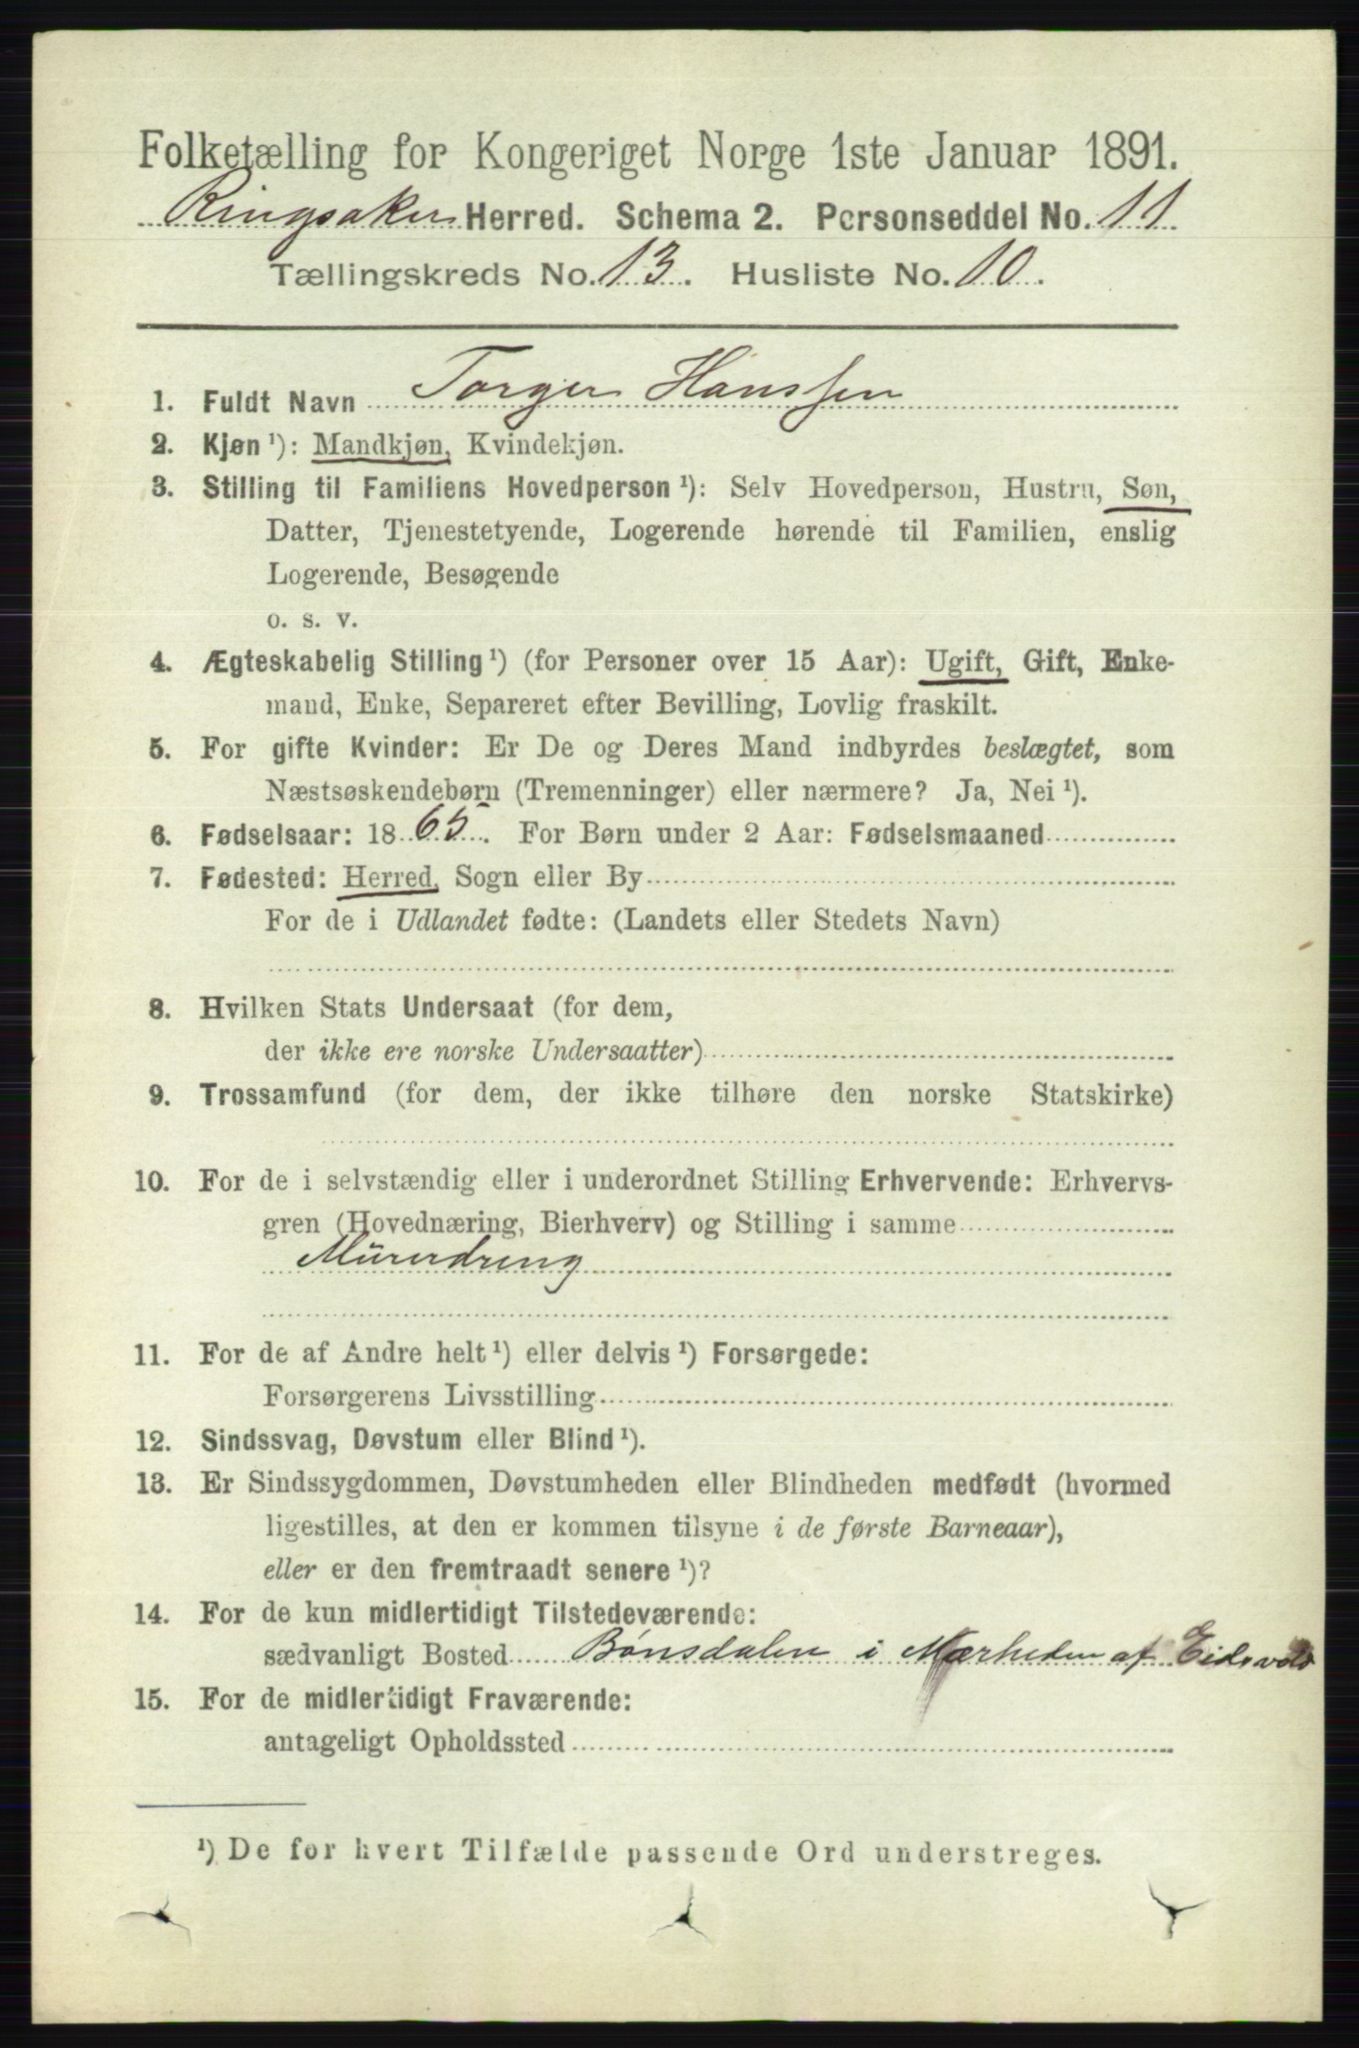 Folketælling for Kongeriget Norge 1ste Januar 1891.
Ringsaker Herred. Schema 2. Personseddel No. 11
Tællingskreds No. 13. Husliste No. 10.
1. Fuldt Navn Torger Hanssen
2. Kjøn ¹): Mandkjøn, Kvindekjøn.
3. Stilling til Familiens Hovedperson ¹): Selv Hovedperson, Hustru, Søn,
Datter, Tjenestetyende, Logerende hørende til Familien, enslig
Logerende, Besøgende
o. s. v.
4. Ægteskabelig Stilling ¹) (for Personer over 15 Aar): Ugift, Gift, Enke-
mand, Enke, Separeret efter Bevilling, Lovlig fraskilt.
5. For gifte Kvinder: Er De og Deres Mand indbyrdes beslægtet, som
Næstsøskendebørn (Tremenninger) eller nærmere? Ja, Nei ¹).
6. Fødselsaar: 1865. For Børn under 2 Aar: Fødselsmaaned
7. Fødested: Herred, Sogn eller By
For de i Udlandet fødte: (Landets eller Stedets Navn)
8. Hvilken Stats Undersaat (for dem,
der ikke ere norske Undersaatter)
9. Trossamfund (for dem, der ikke tilhøre den norske Statskirke)
10. For de i selvstændig eller i underordnet Stilling Erhvervende: Erhvervs-
gren (Hovednæring, Bierhverv) og Stilling i samme
Murerdreng
11. For de af Andre helt ¹) eller delvis ¹) Forsørgede:
Forsørgerens Livsstilling
12. Sindssvag, Døvstum eller Blind ¹).
13. Er Sindssygdommen, Døvstumheden eller Blindheden medfødt (hvormed
ligestilles, at den er kommen tilsyne i de første Barneaar),
eller er den fremtraadt senere ¹)?
14. For de kun midlertidigt Tilstedeværende:
sædvanligt Bosted Bönsdalen i Nærheden af Eidsvold
15. For de midlertidigt Fraværende:
antageligt Opholdssted
¹) De for hvert Tilfælde passende Ord understreges.